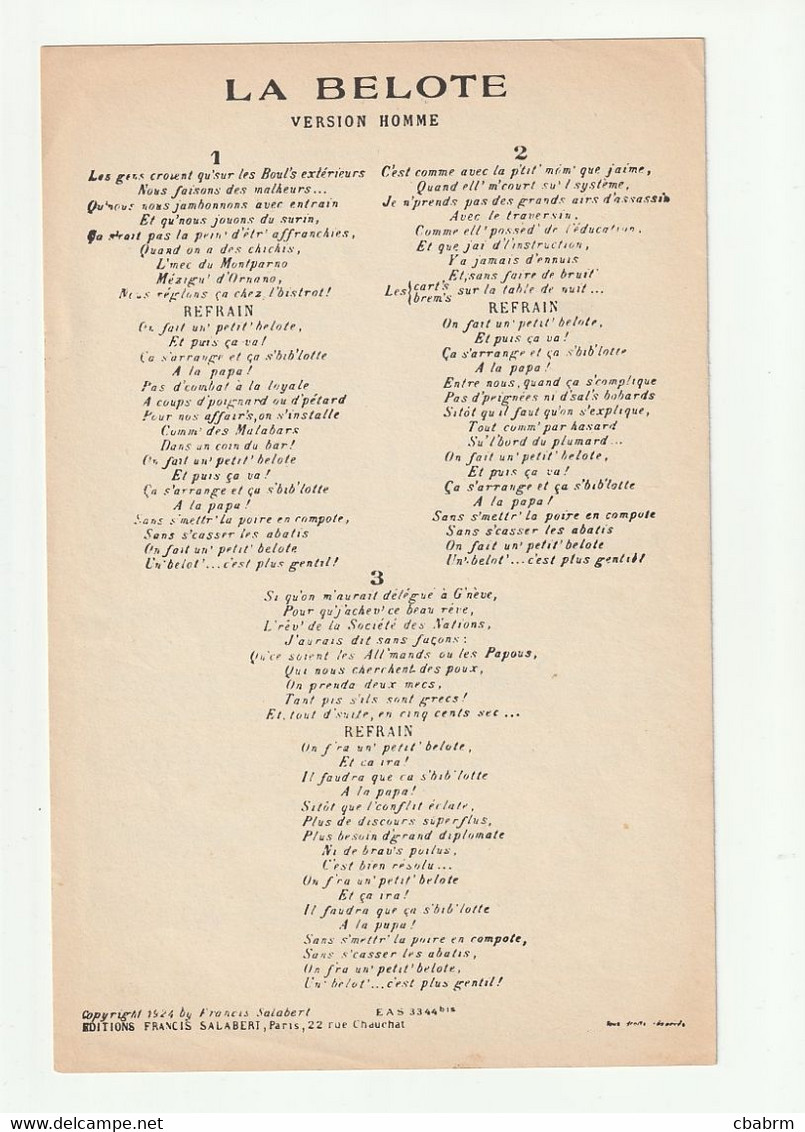 LA BELOTE
VERSION HOMME
1
Les gens croient qu'sur les Boul's extérieurs
Nous faisons des malheurs...
Qu'nous nous jambonnons avec entrain
Et qu'nous jouons du surin,
Ça s'rait pas la pein' d'êtr' affranchies,
Quand on a des chichis,
L'mec du Montparno
Mézigu' d'Ornano,
Nous réglons ça chez l'bistrot!
REFRAIN
On fait un' petit' belote,
Et puis ça va!
Ça s'arrange et ça s'bib'lotte
A la papa!
Pas d'combat à la loyale
A coups d'poignard ou d'pétard
Pour nos affair's, on s'installe
Comm' des Malabars
Dans un coin du bar!
On fait un' petit' belote
Et puis ça va!
Ça s'arrange et ça s'bib'lotte
A la papa!
Sans s'mettr' la poire en compote,
Sans s'casser les abatis
On fait un' petit' belote
Un' belot'... c'est plus gentil!
2
C'est comme avec la p'tit' môm' que j'aime,
Quand ell' m'court su' l'système,
Je n'prends pas des grands airs d'assassin
Avec le traversin,
Comme ell' possèd' de l'éducation,
Et que j'ai d'l'instruction,
Y a jamais d'ennuis
Et, sans faire de bruit
Les {cart's brem's sur la table de nuit...
REFRAIN
On fait un' petit' belote,
Et puis ça va!
Ça s'arrange et ça s'bib'lotte
A la papa!
Entre nous, quand ça s'complique
Pas d'peignées ni d'sal's bobards
Sitôt qu'il faut qu'on s'explique,
Tout comm' par hasard
Su' l'bord du plumard...
On fait un' petit' belote,
Et puis ça va!
Ça s'arrange et ça s'bib'lotte
A la papa!
Sans s'mettr' la poire en compote
Sans s'casser les abatis
On fait un' petit' belote
Un' belot'... c'est plus gentil!
3
Si qu'on m'aurait délégué à G'nève,
Pour qu'j'achev' ce beau rêve,
L'rêv' de la Société des Nations,
J'aurais dit sans façons:
Qu'ce soient les All'mands ou les Papous,
Qui nous cherchent des poux,
On prenda deux mecs,
Tant pis s'ils sont grecs!
Et, tout d'suite, en cinq cents sec...
REFRAIN
On f'ra un' petit' belote,
Et ça ira!
Il faudra que ça s'bib'lotte
A la papa!
Sitôt que l'conflit éclate,
Plus de discours superflus,
Plus besoin d'grand diplomate
Ni de brav's poilus,
C'est bien résolu...
On f'ra un' petit' belote
Et ça ira!
Il faudra que ça s'bib'lotte
A la papa!
Sans s'mettr' la poire en compote,
Sans s'casser les abatis,
On f'ra un' petit' belote,
Un' belot'... c'est plus gentil!
Copyright 1924 by Francis Salabert EAS 3344 bis
EDITIONS FRANCIS SALABERT, Paris, 22 rue Chauchat
tous droits réservés
cbabrm